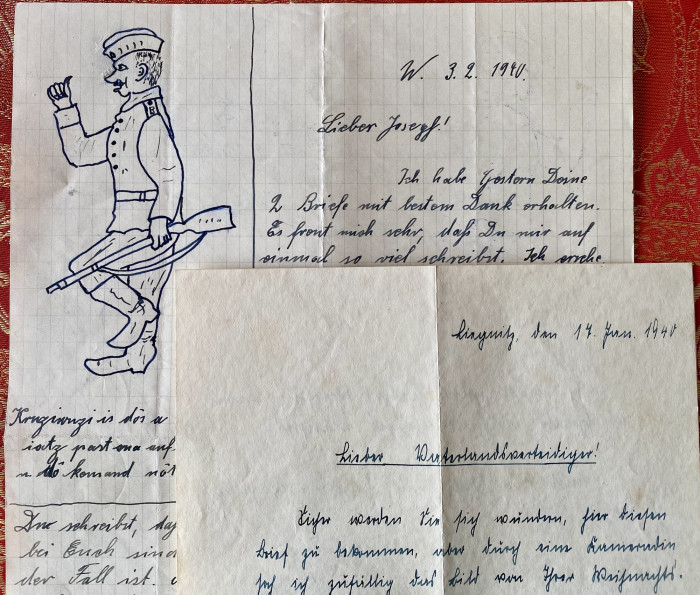 W. 3.2. 1940.
Lieber Joseph!
Ich habe Gestern Deine
2 Briefe mit bestem Dank erhalten.
Es freut mich sehr, daß Du mir auf
einmal so viel schreibst. Ich
Kruziwuzi is dös a
iatz past ma auf
u. dö komand nöt
Du schreibst, daß
bei Euch sind
der Fall ist.
Liegnitz, den 17. Jan. 1940
Lieber Vaterlandsverteidiger!
Sicher werden Sie sich wundern, hier diesen
Brief zu bekommen, aber durch eine Kameradin
sah ich zufällig das Bild von Ihrer Weihnachts-